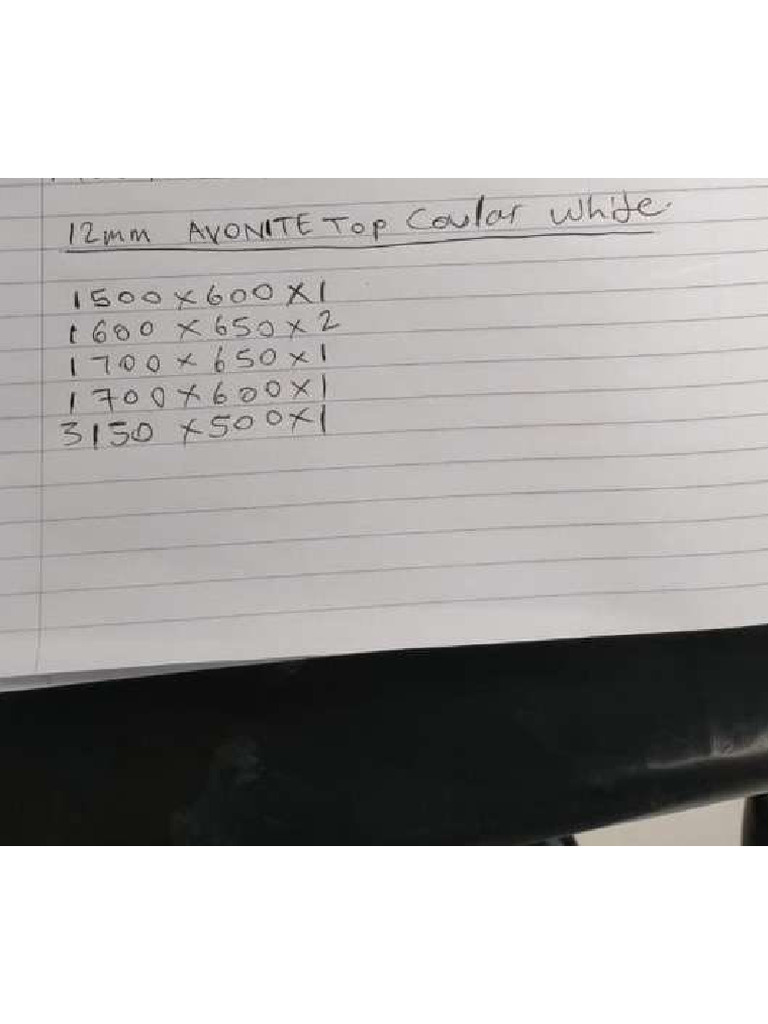 12mm AVONITE Top Coular White.
1500 x 600 x 1
1600 x 650 x 2
1700 x 650 x 1
1700 x 600 x 1
3150 x 500 x 1